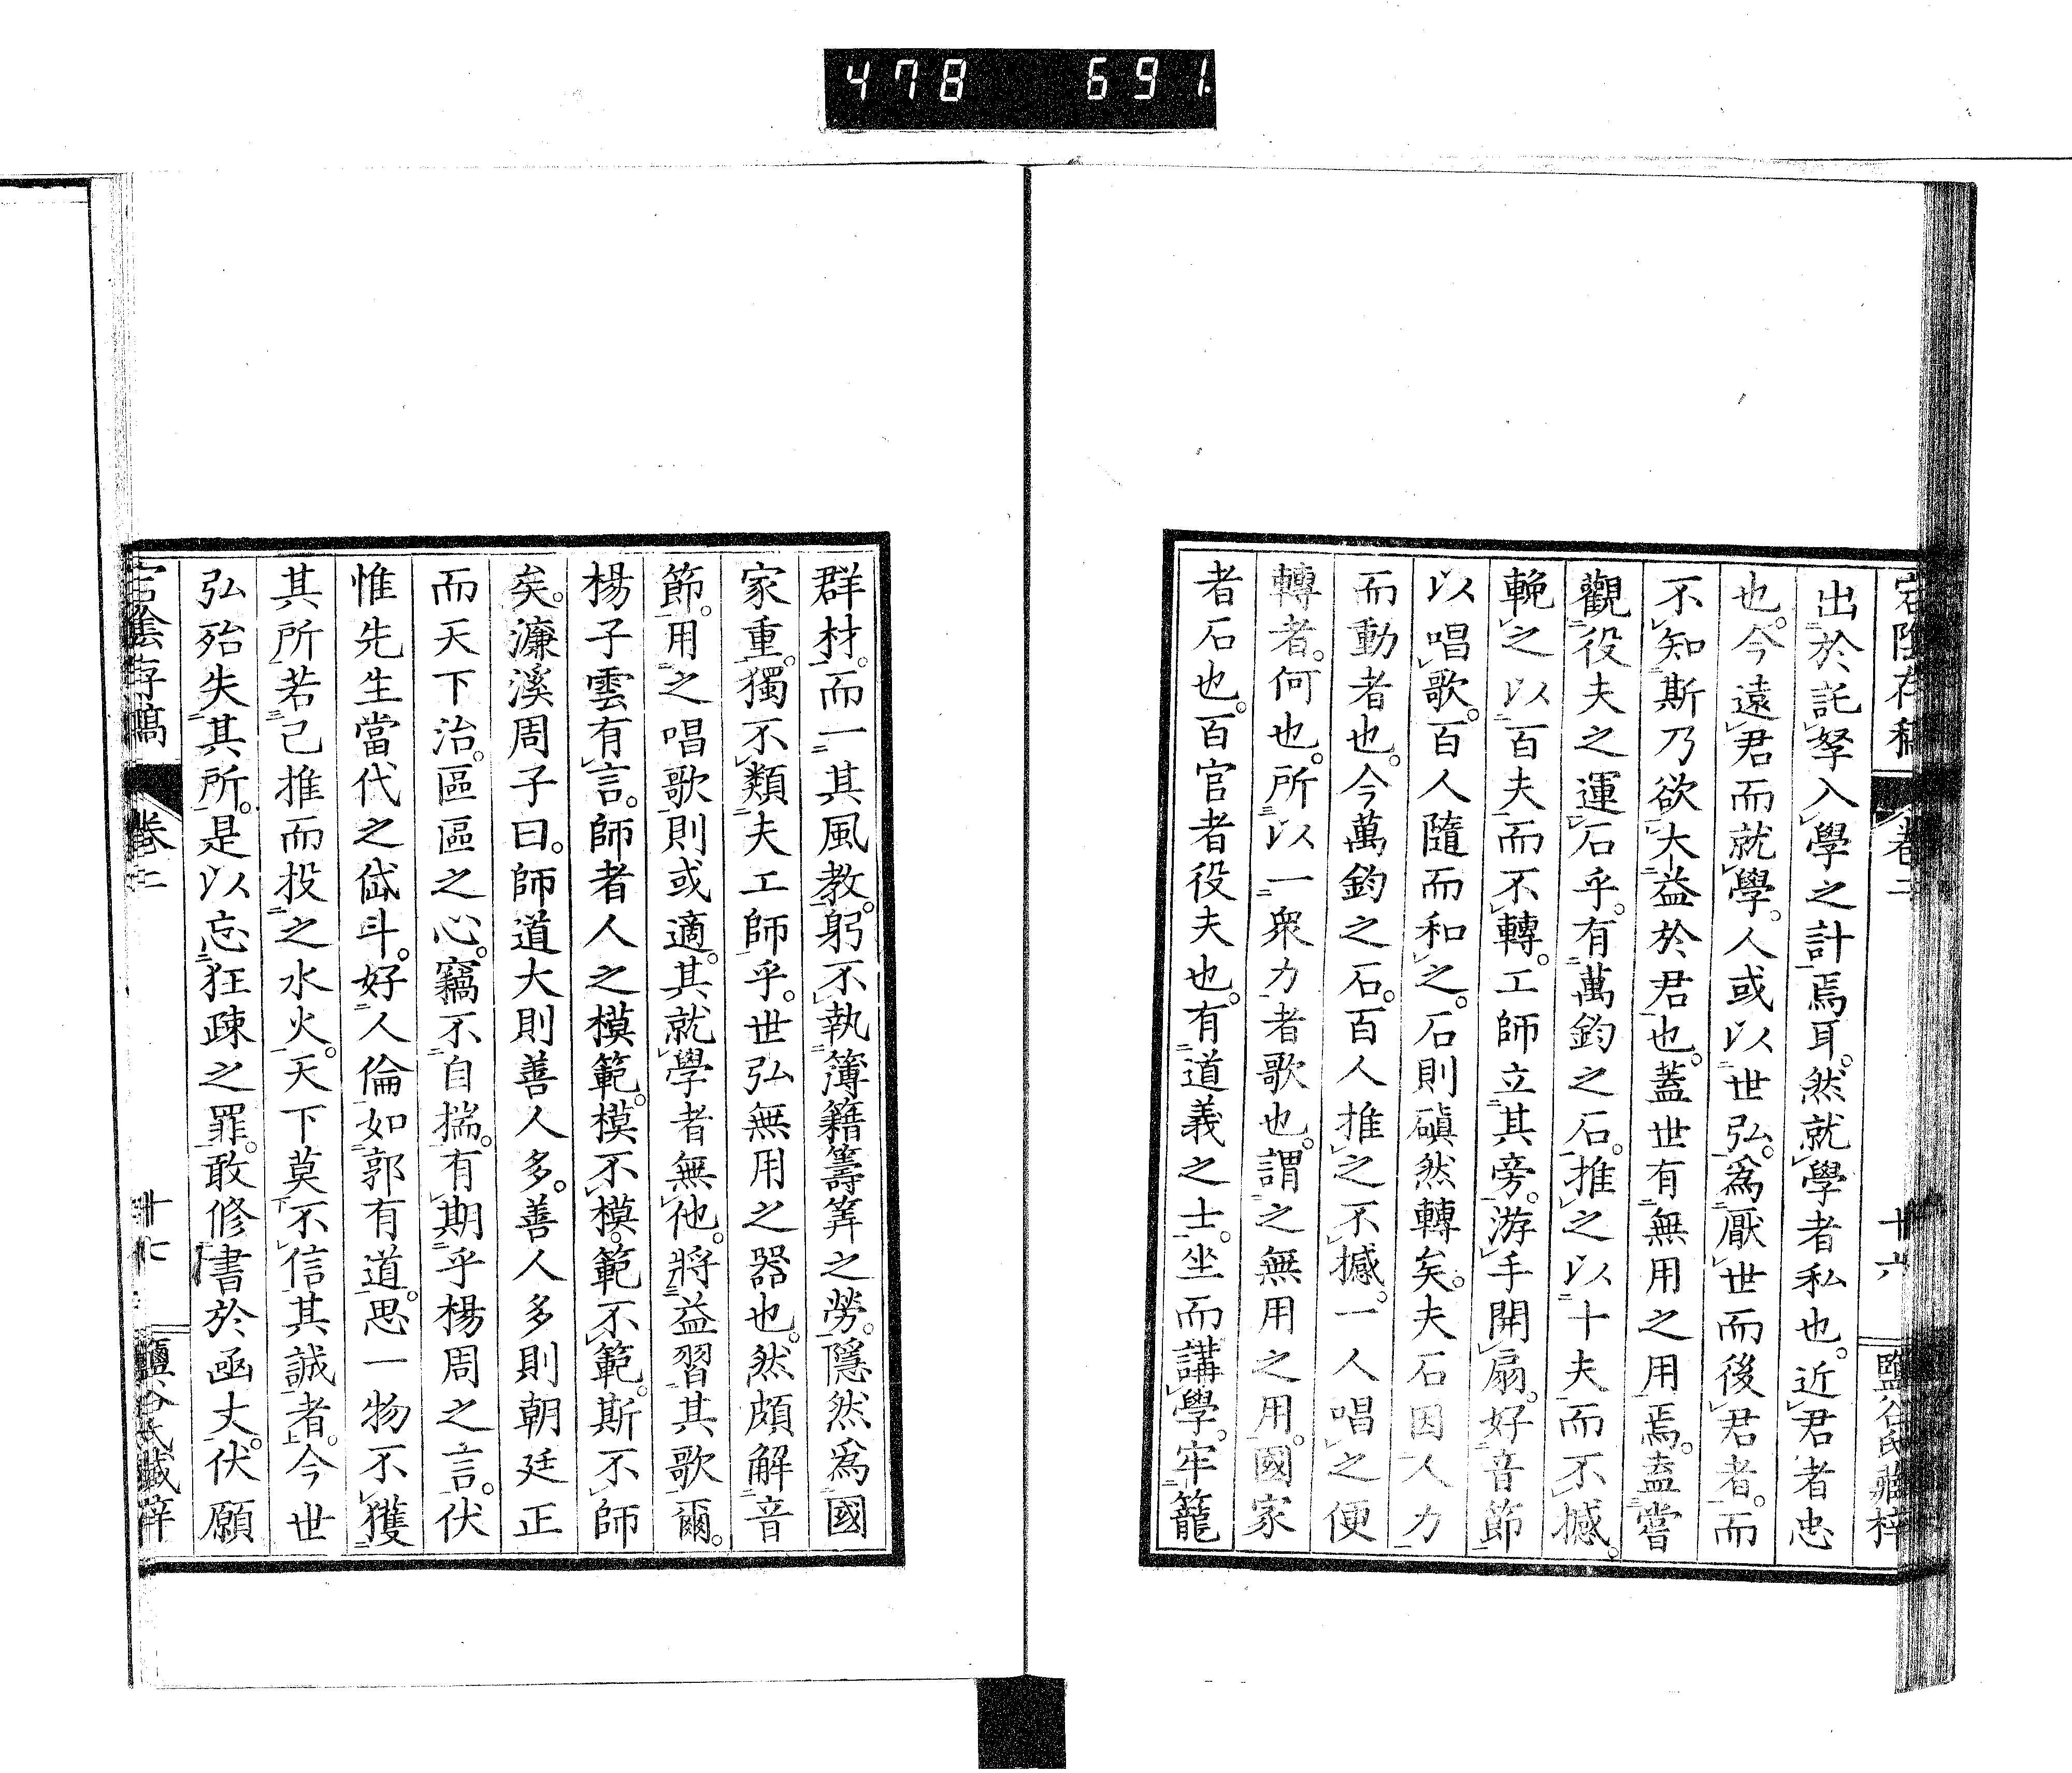 478 691
宕陰存稿 卷二 十六 鹽谷氏藏梓
出於託孥入學之計焉耳。然就學者私也。近君者忠
也。今遠君而就學。人或以世弘。爲厭世而後君者。而
不知斯乃欲大益於君也。蓋世有無用之用焉。盍嘗
觀役夫之運石乎。有萬鈞之石。推之以十夫而不撼。
輓之以百夫而不轉。工師立其旁。游手開扇。好音節
以唱歌。百人隨而和之。石則磒然轉矣。夫石因人力
而動者也。今萬鈞之石。百人推之不撼。一人唱之便
轉者。何也。所以一衆力者歌也。謂之無用之用。國家
者石也。百官者役夫也。有道義之士。坐而講學。牢籠
群材。而一其風教。躬不執簿籍籌筭之勞。隱然爲國
家重。獨不類夫工師乎。世弘無用之器也。然頗解音
節。用之唱歌則或適。其就學者無他。將益習其歌爾。
楊子雲有言。師者人之模範。模不模。範不範。斯不師
矣。濂溪周子曰。師道大則善人多。善人多則朝廷正
而天下治。區區之心。竊不自揣。有期乎楊周之言。伏
惟先生當代之岱斗。好人倫如郭有道。思一物不獲
其所若己推而投之水火。天下莫不信其誠者。今世
弘殆失其所。是以忘狂疎之罪。敢修書於函丈。伏願
宕陰存稿 卷二 十七 鹽谷氏藏梓